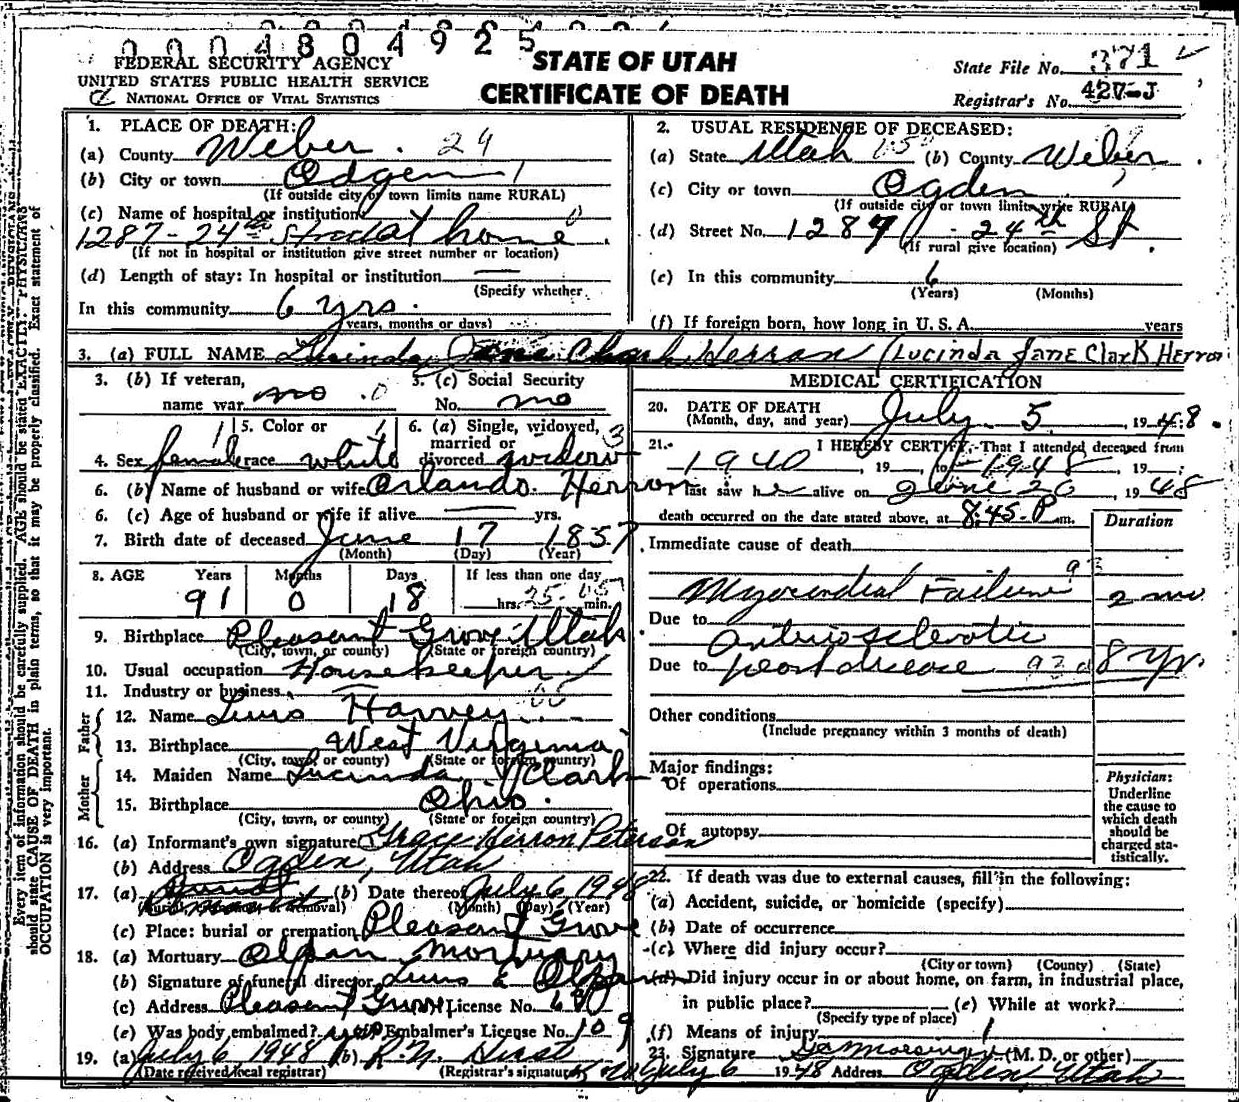 0004804925
FEDERAL SECURITY AGENCY
UNITED STATES PUBLIC HEALTH SERVICE
NATIONAL OFFICE OF VITAL STATISTICS
STATE OF UTAH
CERTIFICATE OF DEATH
State File No. 371
Registrar's No. 427-J
1. PLACE OF DEATH:
(a) County Weber. 29
(b) City or town Odgen 1
(If outside city or town limits name RURAL)
(c) Name of hospital or institution 0
1287-24th at home
(If not in hospital or institution give street number or location)
(d) Length of stay: In hospital or institution —
(Specify whether
In this community 6 yrs.
years, months or days)
2. USUAL RESIDENCE OF DECEASED:
(a) State Utah (b) County Weber
(c) City or town Ogden
(If outside city or town limits write RURAL)
(d) Street No. 1287 24th St.
(If rural give location)
(e) In this community 6
(Years) (Months)
(f) If foreign born, how long in U.S.A. years
3. (a) FULL NAME Lucinda Jane Clark Herron (Lucinda Jane Clark Herron
3. (b) If veteran, name war no .0
3. (c) Social Security No. no
4. Sex female 5. Color or race white 6. (a) Single, widowed, married or divorced widow 3
6. (b) Name of husband or wife Orlando Herron
6. (c) Age of husband or wife if alive — yrs.
7. Birth date of deceased June 17 1857
(Month) (Day) (Year)
8. AGE Years Months Days If less than one day
91 0 18 hrs. min.
9. Birthplace Pleasant Grove Utah
(City, town, or county) (State or foreign country)
10. Usual occupation Housekeeper
11. Industry or business —
Father
12. Name Lewis Harvey
13. Birthplace West Virginia
(City, town, or county) (State or foreign country)
Mother
14. Maiden Name Lucinda Clark
15. Birthplace Ohio.
(City, town, or county) (State or foreign country)
16. (a) Informant's own signature Grace Herron Peterson
(b) Address Ogden, Utah
17. (a) (b) Date thereof July 6 1948
(Burial, cremation, or removal) (Month) (Day) (Year)
(c) Place: burial or cremation Pleasant Grove
18. (a) Mortuary Olpin Mortuary
(b) Signature of funeral director Lewis E Olpin
(c) Address Pleasant Grove License No. 68
(e) Was body embalmed? yes Embalmer's License No. 109
19. (a) July 6 1948 (b) Hirst
(Date received local registrar) (Registrar's signature)
MEDICAL CERTIFICATION
20. DATE OF DEATH
(Month, day, and year) July 5, 1948.
21. I HEREBY CERTIFY, That I attended deceased from
1940, 19 , to 1948, 19 ;
I last saw her alive on June 20 1948
death occurred on the date stated above, at 8:45 P m.
Duration
Immediate cause of death
Myocardial Failure 2 mo
Due to Arteriosclerotic
Due to heart disease 8 Yr.
Other conditions
(Include pregnancy within 3 months of death)
Major findings:
Of operations
Of autopsy
Physician:
Underline
the cause to
which death
should be
charged sta-
tistically.
22. If death was due to external causes, fill in the following:
(a) Accident, suicide, or homicide (specify)
(b) Date of occurrence
(c) Where did injury occur?
(City or town) (County) (State)
(d) Did injury occur in or about home, on farm, in industrial place,
in public place? (e) While at work?
(Specify type of place)
(f) Means of injury
23. Signature (M. D. or other)
July 6 1948 Address Ogden, Utah
Every item of information should be carefully supplied. AGE should be stated EXACTLY. PHYSICIANS
should state CAUSE OF DEATH in plain terms, so that it may be properly classified. Exact statement of
OCCUPATION is very important.